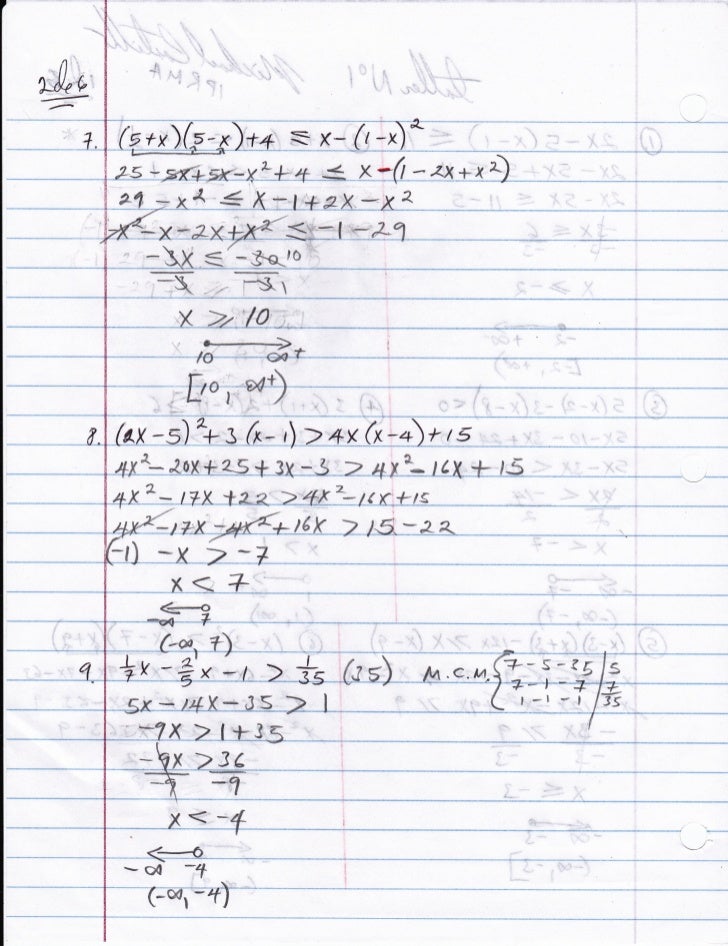 2 de 6
7. (5+x)(5-x)+4 ≤ x-(1-x)²
25-5x+5x-x²+4 ≤ x-(1-2x+x²)
29-x² ≤ x-1+2x-x²
-x²-x-2x+x² ≤ -1-29
-3x ≤ -30 10
-3 -3 1
x ≥ 10
10 ∞+
[10, ∞+)
8. (2x-5)²+3(x-1) > 4x(x-4)+15
4x²-20x+25+3x-3 > 4x²-16x+15
4x²-17x+22 > 4x²-16x+15
4x²-17x-4x²+16x > 15-22
(-1) -x > -7
x < 7
-∞ 7
(-∞, 7)
9. 1/7x - 2/5x - 1 > 1/35 (35) M.C.M. { 7-5-35 | 5
7-1-7 | 7
1-1-1 | 35
5x-14x-35 > 1
-9x > 1+35
-9x > 36
-9 -9
x < -4
-∞ -4
(-∞, -4)